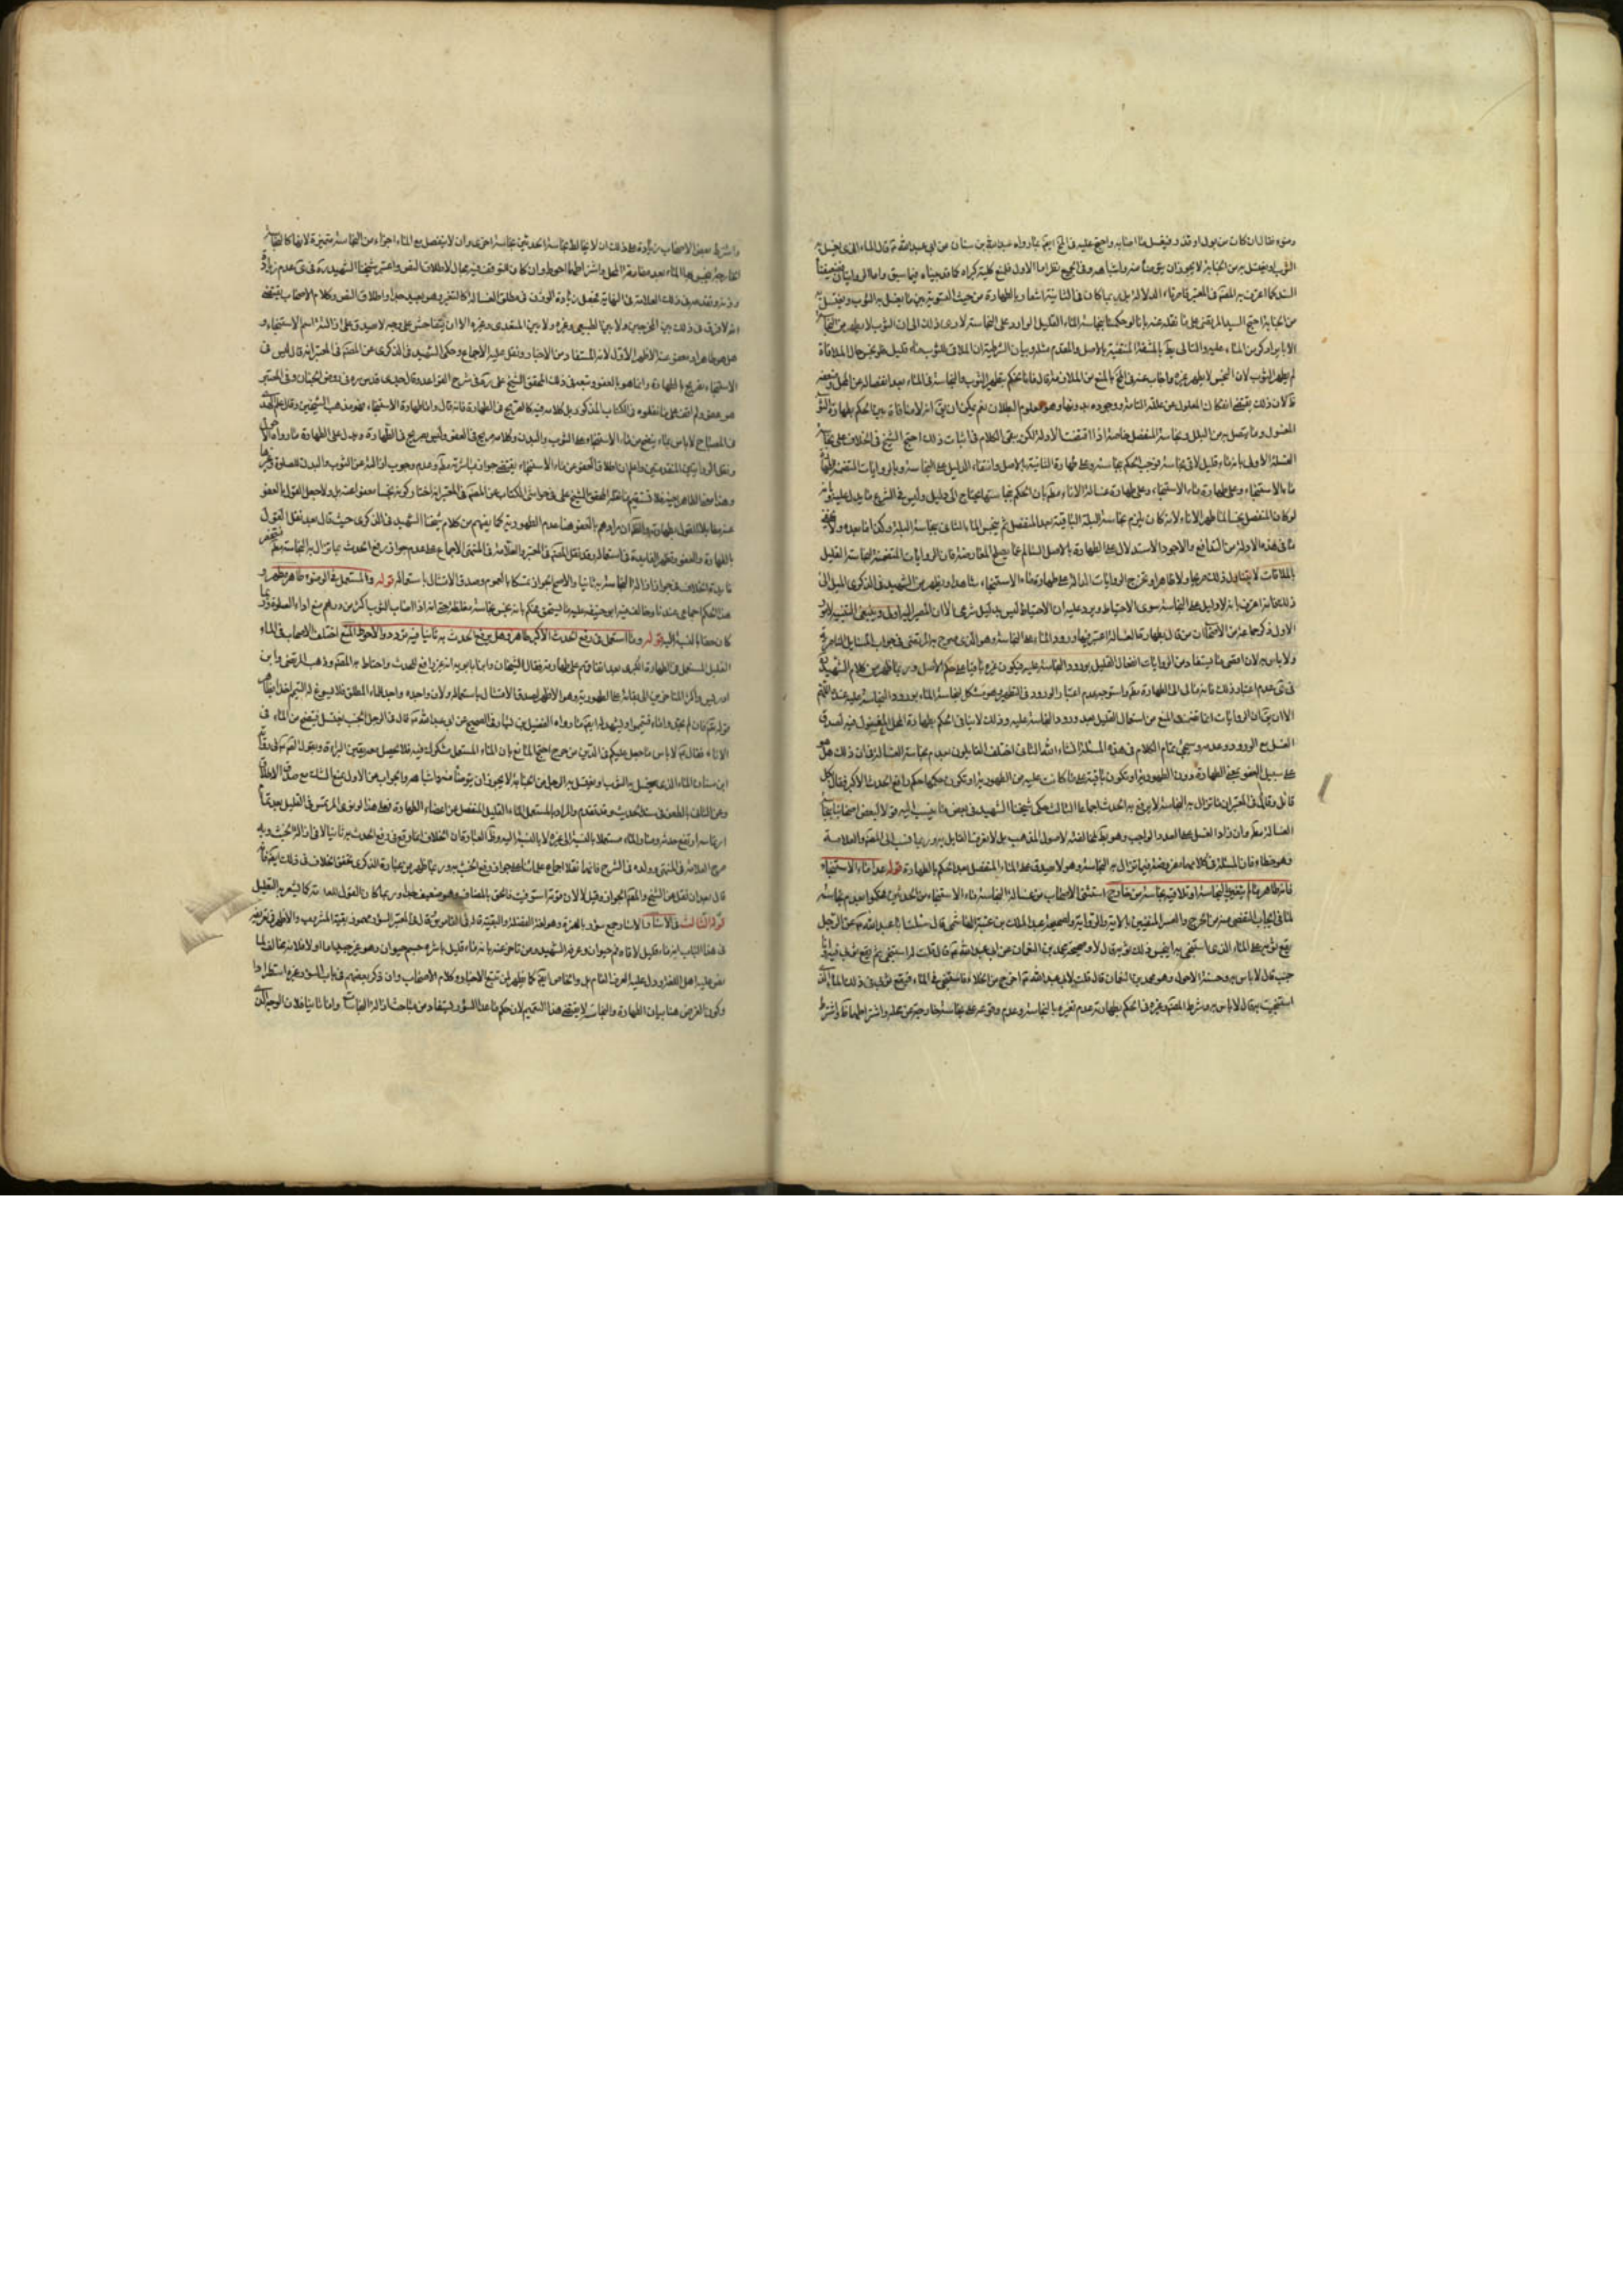 وضوء فقال ان كانت من بول او قذر فيغسل ما اصابه واحتج عليه في الخلاف ايضا بما رواه عبد الله بن سنان عن ابي عبد الله قال الماء الذي يغسل به
الثوب او يغتسل به من الجنابة لا يجوز ان يتوضأ منه واشباهه وفي الجميع نظر اما الاول فلمنع كلية كبراه كما قد بيناه فيما سبق واما الروايتان
السند كما اعترف به المصنف في المعتبر قاصرتا الدلالة بل ربما كان في الثانية اشعار بالطهارة من حيث التسوية بين ما يغسل به الثوب ويغتسل به
من الجنابة احتج السيد المرتضى على ما نقل عنه بانا لو حكمنا بنجاسة الماء القليل الوارد على النجاسة لادى ذلك الى ان الثوب لا يطهر من النجاسة
الا بايراد كر من الماء عليه والتالي باطل بالمشقة المنفية بالاصل والمقدم مثله وبيان الشرطية ان الملاقي للثوب ماء قليل فلو نجس حال الملاقاة
لم يطهر الثوب لان النجس لا يطهر غيره واجاب عنه في المختلف بالمنع من الملازمة قال فانا نحكم بتطهير الثوب والنجاسة في الماء بعد انفصاله عن المحل وضعفه
ظ لان ذلك يقتضي انفكاك المعلول عن علته التامة ووجوده بدونها وهو معلوم البطلان نعم يمكن ان يقال انه لا منافاة بين الحكم بطهارة الثوب
المغسول وما يتصل به من البلل ونجاسة المنفصل خاصة اذا اقتضت الادلة لكن يبقى الكلام في اثبات ذلك احتج الشيخ في الخلاف على نجاسة
الغسلة الاولى بانه ماء قليل لاقى نجاسة فوجب الحكم بنجاسته وعلى طهارة الثانية بالاصل وانتفاء الدليل على النجاسة وبالروايات المتضمنة لطهارة
ماء الاستنجاء وعلى طهارة ماء الاستنجاء وعلى طهارة غسالة الاناء مطلقا بان الحكم بنجاستها يحتاج الى دليل وليس في الشرع ما يدل عليه وبانه
لو كان المنفصل نجسا لما طهر الاناء لانه كان يلزم نجاسة البلة الباقية بعد المنفصل ثم ينجس الماء الثاني بنجاسة البلة وكذا ما بعده ولا يخفى
ما في هذه الادلة من التدافع والاجود الاستدلال على الطهارة بالاصل السالم عما يصلح للمعارضة فان الروايات المتضمنة لنجاسة القليل
بالملاقات لا يتناول ذلك صريحا ولا ظاهرا وتخرج الروايات الدالة على طهارة ماء الاستنجاء شاهدا ويظهر من الشهيد في الذكرى الميل الى
ذلك فانه اعترف بانه لا دليل على النجاسة سوى الاحتياط ويرد عليه ان الاحتياط ليس بدليل شرعي الا ان المصير اليه اولى وينبغي التنبيه لامور
الاول ذكر جماعة من الاصحاب ان من قال بطهارة الغسالة اعتبر فيها ورود الماء على النجاسة وهو الذي صرح به المرتضى في جواب المسايل الناصرية
ولا باس به لان اقصى ما يستفاد من الروايات انفعال القليل بورود النجاسة عليه فيكون غيره باقيا على حكم الاصل وربما ظهر من كلام الشهيد
في عدم اعتبار ذلك فانه مال الى الطهارة مطلقا واستوجه عدم اعتبار الورود في التطهير وهو مشكل لنجاسة الماء بورود النجاسة عليه عنده
الا ان يقال ان الروايات انما تضمنت المنع من استعمال القليل بعد ورود النجاسة عليه وذلك لا ينافي الحكم بطهارة المحل المغسول فيه لصدق
الغسل مع الورود وعدمه وسيجئ تمام الكلام في هذه المسئلة انشاء الله الثاني اختلف القايلون بعدم نجاسة الغسالة في ان ذلك هل هو
على سبيل العفو بمعنى الطهارة دون الطهورية او تكون باقية على ما كانت عليه من الطهورية او تكون حكمها حكم رافع الحدث الاكبر فقال بكل
قائل وقال في المعتبر ان ما تزال به النجاسة لا يرفع به الحدث اجماعا الثالث حكى شيخنا الشهيد في بعض ما ينسب اليه قولا لبعض اصحابنا بنجاسة
الغسالة مطلقا وان زاد الغسل على العدد الواجب وهو مع مخالفته لاصول المذهب بل لا نعرف القايل به وربما نسب الى المصنف والعلامة
وهو خطاء فان المسئلة في كلامهما مفروضة فيما تزال به النجاسة وهو لا يصدق على الماء المنفصل بعد الحكم بالطهارة قوله عدا ماء الاستنجاء
فانه طاهر ما لم يتغير بالنجاسة او تلاقيه نجاسة من خارج استثنى الاصحاب من غسالة النجاسة ماء الاستنجاء من الحدثين فحكموا بعدم نجاسته
لما في ايجاب التفصي منه من الحرج والعسر المنفيين بالاية والرواية ولصحيحة عبد الملك بن عتبة الهاشمي قال سئلت ابا عبد الله عن الرجل
يقع ثوبه على الماء الذي استنجى به اينجس ذلك ثوبه قال لا وصحيحة محمد بن النعمان عن ابي عبد الله قال قلت له استنجي ثم يقع ثوبي فيه وانا
جنب قال لا باس به وحسنة الاحول وهو محمد بن النعمان قال قلت لابي عبد الله اخرج من الخلاء فاستنجي في الماء فيقع ثوبي في ذلك الماء الذي
استنجيت به فقال لا باس به وشرط المصنف وغيره في الحكم بطهارته عدم تغيره بالنجاسة وعدم وقوعه على نجاسة خارجة عن محله واشتراطهما ظاهر واشترط
واشترط بعض الاصحاب زيادة على ذلك ان لا يخالط نجاسة الحدثين نجاسة اخرى وان لا ينفصل مع الماء اجزاء من النجاسة متميزة لانها كالنجاسة
الخارجة ينجس بها الماء بعد مفارقة المحل واشتراطهما احوط وان كان التوقف فيه مجال لاطلاق النص واعتبر شيخنا الشهيد في عدم زيادة
وزنه ونقدمه في ذلك العلامة في النهاية فجعل زيادة الوزن في مطلق الغسالة كالتغير وهو بعيد جدا واطلاق النص وكلام الاصحاب يقتضي
انه لا فرق في ذلك بين المخرجين ولا بين الطبيعي وغيره ولا بين المتعدي وغيره الا ان يتفاحش على وجه لا يصدق على ازالته اسم الاستنجاء و
هل هو طاهر او معفو عنه الاظهر الاول لانه المستفاد من الاخبار ونقل عليه الاجماع وحكى الشهيد في الذكرى عن المصنف في المعتبر انه قال ليس في
الاستنجاء تصريح بالطهارة وانما هو بالعفو وتبعه في ذلك المحقق الشيخ علي في شرح القواعد
هو عفو ولم اقف على ما نقلوه في الكتاب المذكور بل كلامه فيه كالصريح في الطهارة فانه قال واما طهارة الاستنجاء فهو مذهب الشيخين وقال علم الهدى
في المصباح لا باس بماء ينضح من ماء الاستنجاء على الثوب والبدن وكلامه صريح في العفو وليس بصريح في الطهارة ويدل على الطهارة ما رواه الاحول
ونقل الروايتين المتقدمتين واعلم ان اطلاق العفو عن ماء الاستنجاء يقتضي جواز مباشرته مطلقا وعدم وجوب ازالته عن الثوب والبدن للصلوة وغيرها
وهذا معنى الطاهر بعينه فلا يستقيم ما نقله المحقق الشيخ علي في حواشي الكتاب عن المصنف في المعتبر انه اختار كونه نجسا معفوا عنه بل ولا جعل القول بالعفو
عنه مقابلا للقول بطهارته والظاهر ان مرادهم بالعفو هنا عدم الطهورية كما يفهم من كلام شيخنا الشهيد في الذكرى حيث قال بعد نقل القول
بالطهارة والعفو وتظهر الفايدة في استعماله وقد نقل المصنف في المعتبر والعلامة في المنتهى الاجماع على عدم جواز رفع الحدث بما تزال به النجاسة مطلقا
فايدة الخلاف في جواز ازالة النجاسة به ثانيا والاصح الجواز تمسكا بالعموم وصدق الامتثال باستعماله قوله والمستعمل في الوضوء طاهر مطهر و
هذا الحكم اجماعي عندنا وخالف فيه ابو حنيفه فحكم بانه نجس نجاسة مغلظة حتى انه اذا اصاب الثوب اكثر من درهم منع اداء الصلوة فيه
قوله وما استعمل في رفع الحدث الاكبر طاهر وهل يرفع الحدث به ثانيا فيه تردد والاحوط المنع اختلف الاصحاب في الماء
القليل المستعمل في الطهارة الكبرى بعد اتفاقهم على طهارته فقال الشيخان وابنا بابويه انه غير رافع للحدث واحتاط به المصنف وذهب المرتضى وابن
ادريس واكثر المتاخرين الى بقائه على الطهورية وهو الاظهر لصدق الامتثال باستعماله ولان واجده واجد للماء المطلق فلا يسوغ له التيمم اخذا بظاهر
قوله تعالى فان لم تجدوا ماء فتيمموا ويشهد له ايضا ما رواه الفضيل بن يسار في الصحيح عن ابي عبد الله قال في الرجل الجنب يغتسل فينتضح من الماء في
الاناء فقال لا باس ما جعل عليكم في الدين من حرج احتج المانع بان الماء المستعمل مشكوك فيه فلا يحصل معه يقين البراءة وبقوله في رواية
ابن سنان الماء الذي يغسل به الثوب او يغتسل به الرجل من الجنابة لا يجوز ان يتوضأ منه واشباهه والجواب عن الاول منع الشك مع صدق الاطلاق
وعن الثاني بالطعن في سند الحديث وقد تقدم والمراد بالمستعمل الماء القليل المنفصل عن اعضاء الطهارة فعلى هذا لو نوى المرتمس في القليل بعد تمام
ارتماسه ارتفع حدثه وصار الماء مستعملا بالنسبة الى غيره لا بالنسبة اليه وظاهر العبارة ان الخلاف انما وقع في رفع الحدث به ثانيا لا في ازالة الخبث وبه
صرح العلامة في المنتهى وولده في الشرح فانهما نقلا اجماع علمائنا على جواز رفع الخبث به وربما ظهر من عبارة الذكرى تحقق الخلاف في ذلك ايضا
قال بعد ان نقل عن الشيخ والمصنف الجواز وقيل لا لان قوته استوفيت فالحق بالمضاف وهو ضعيف جدا وربما كان القول للعامة كما يشعر به التعليل
قوله الثالث في الاسئار الاسئار جمع سؤر بالهمزة وهو لغة الفضلة والبقية قاله في القاموس وقال في المعتبر السؤر مهموز بقية المشروب والاظهر في تعريفه
في هذا الباب انه ماء قليل لاقاه فم حيوان وعرفه الشهيد ومن تاخر عنه بانه ماء قليل باشره جسم حيوان وهو غير جيد اما اولا فلانه مخالف لما
نص عليه اهل اللغة ودل عليه العرف العام بل والخاص ايضا كما يظهر لمن تتبع الاخبار وكلام الاصحاب وان ذكر بعضهم في باب السؤر غيره استطرادا
وكون الغرض هنا بيان الطهارة والنجاسة لا يقتضي هذا التعميم لان حكم ما عدا السؤر يستفاد من مباحث ازالة النجاسات واما ثانيا فلان الوجه الذي